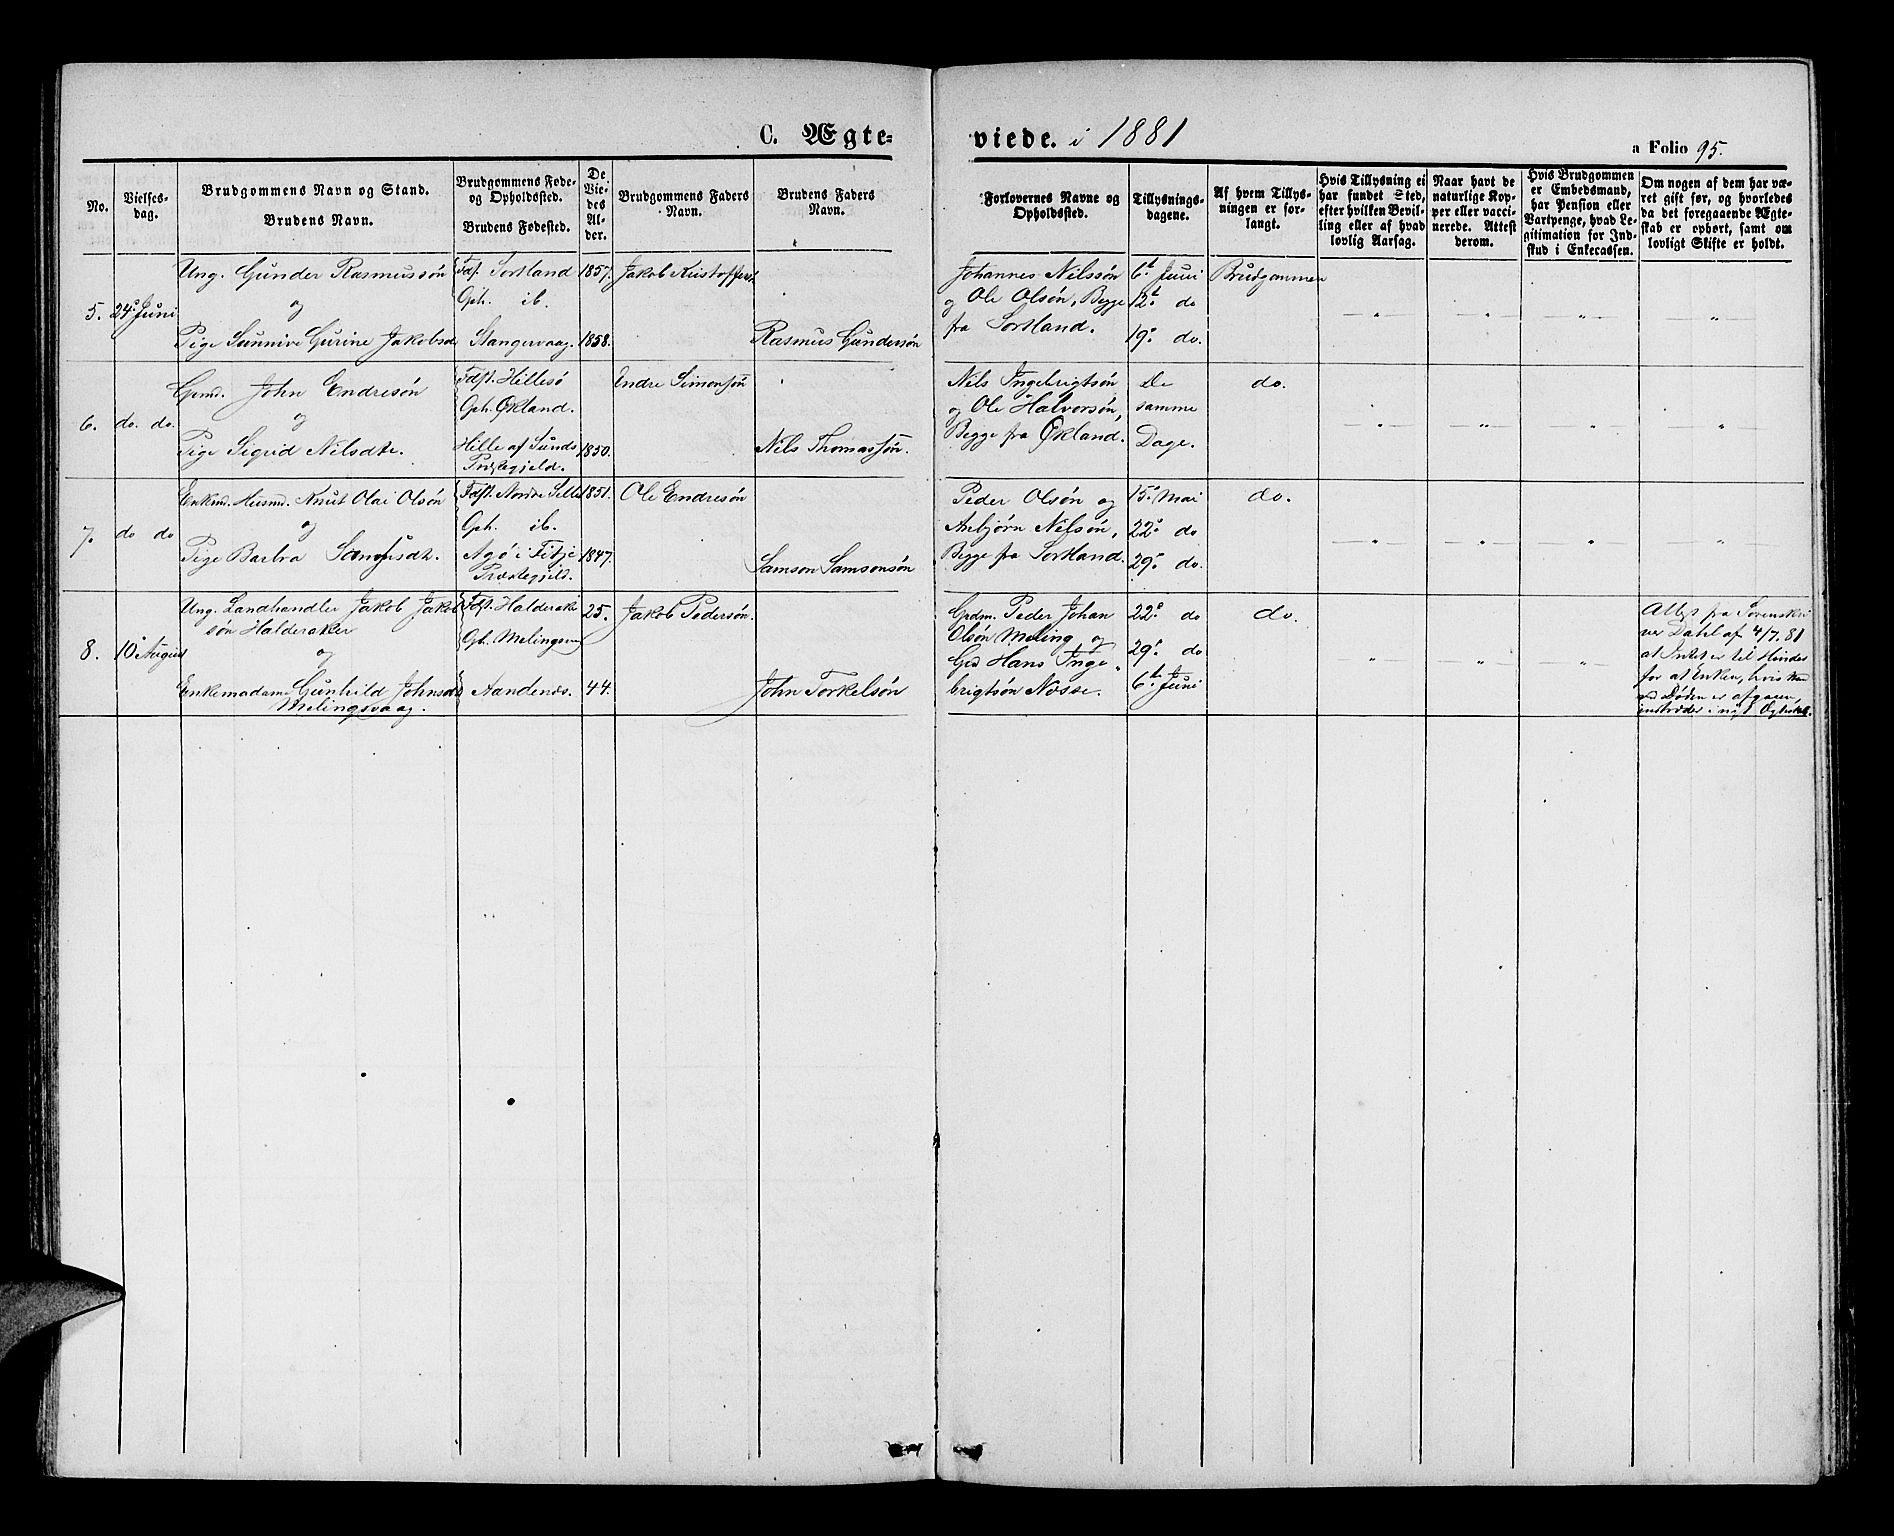 C. Ægte-
viede. i 1881
a Folio 95.
No.
Vielses-
dag.
Brudgommens Navn og Stand.
Brudens Navn.
Brudgommens Føde-
og Opholdssted.
Brudens Fødested.
De
Vie-
des
Al-
der.
Brudgommens Faders
Navn.
Brudens Faders
Navn.
Forlovernes Navne og
Opholdssted.
Tillysnings-
dagene.
Af hvem Tillys-
ningen er for-
langt.
Hvis Tillysning ei
har fundet Sted,
efter hvilken Bevil-
ling eller af hvad
lovlig Aarsag.
Naar havt de
naturlige Kop-
per eller vacci-
nerede. Attest
derom.
Hvis Brudgommen
er Embedsmand,
har Pension eller
Vartpenge, hvad Le-
gitimation for Ind-
skud i Enkecassen.
Om nogen af dem har væ-
ret gift før, og hvorledes
da det foregaaende Ægte-
skab er ophørt, samt om
lovligt Skifte er holdt.
5. 24. Juni
Ung. Gunder Rasmussøn
og
Pige Sunnive Gurine Jakobsd.
Fdst. Sortland
Oph. ib.
Stangervaag.
1857.
1858.
Jakob Kristoffers.
Rasmus Gundersøn
Johannes Nilssøn
og Ole Olsøn, Begge
fra Sortland.
6t Juni
12t do
19. do.
Brudgommen
6. do. do.
Gpmd. John Endresøn
og
Pige Sigrid Nilsdtr.
Fdst. Hillesø
Oph. Økland.
Hille af Sunds
Præstegjeld.
1850.
Endre Simonsøn
Nils Thomassøn.
Nils Ingebrigtsøn
og Ole Halvorsøn,
Begge fra Økland.
De
samme
Dage.
do.
7. do do
Enkmd. Husmd. Knut Olai Olsøn
og
Pige Barbra
Fdst. Nordre
Oph. ib.
Agø i Fitje
Præstegjeld.
1851.
1847.
Ole Endresøn
Samson Samsonsøn
Peder Olsøn og
Anbjørn Nilsøn,
Begge fra Sortland.
15. Mai
22. do
29. do.
do.
8. 10 August
Ung. Landhandler Jakob Jakob
søn Halderaker
og
Enkemadame Gunhild Johnsd.
Melingsvaag.
Fdst. Halderaker
Oph. Melingsvaag
Aandenæs.
25.
44.
Jakob Pedersøn.
John Torkelsøn
Grdm. Peder Johan
Olsøn Meling og
Grd Hans Inge-
brigtsøn Nosse.
22. do
29. do
6t Juni
do.
Attest fra Sorenskri
ver Dahl af 4/7. 81
at Intet er til Hinder
for at Enken, hvis Man
ved Døden er afgaaen,
indtræder i nyt Ægteskab.